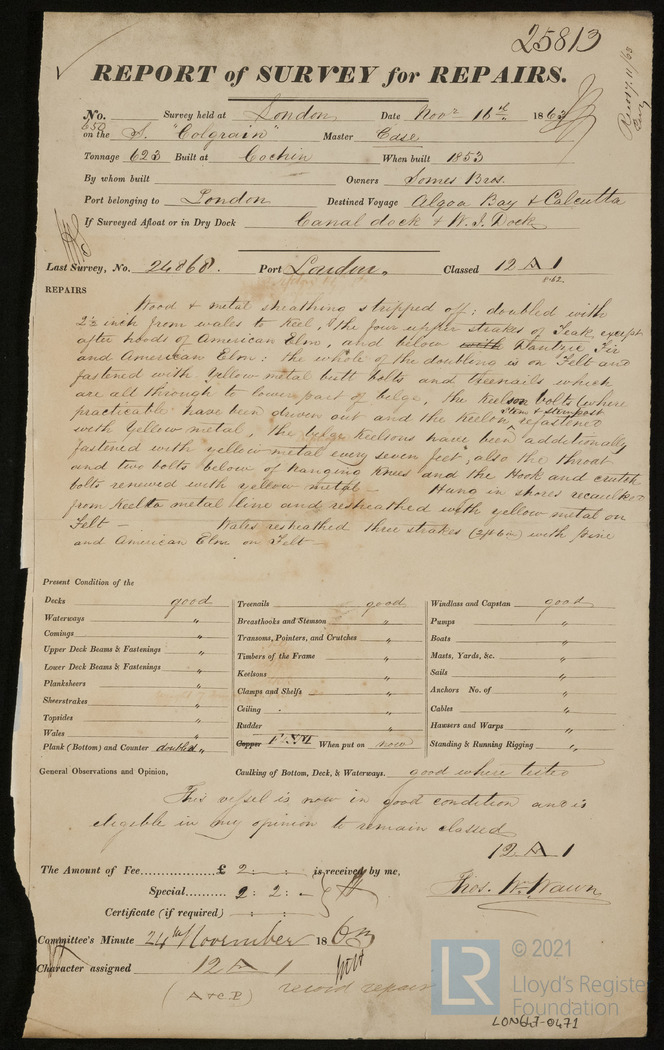 25813
REPORT of SURVEY for REPAIRS.
No. Survey held at London Date Novr 16th 1863
650
on the S. "Colgrain" Master Case
Tonnage 623 Built at Cochin When built 1853
By whom built Owners Somes Bros.
Port belonging to London Destined Voyage Algoa Bay & Calcutta
If Surveyed Afloat or in Dry Dock Canal dock & W. I. Dock
Last Survey, No. 24868. Port London. Classed 12 A 1
8.62.
REPAIRS
Wood & metal sheathing stripped off: doubled with
2½ inch from wales to Keel, the four upper strakes of Teak except
after hoods of American Elm, and below with Dantzic Fir
and American Elm: the whole of the doubling is on Felt and
fastened with Yellow metal butt bolts and Treenails which
are all through to lower part of bilge, the Keelson bolts (where
practicable have been driven out and the Keelson, stem & sternpost refastened
with Yellow metal, the bilge Keelsons have been additionally
fastened with yellow metal every seven feet, also the throat
and two bolts below of hanging Knees and the Hook and crutch
bolts renewed with yellow metal — Hung in shores recaulked
from Keel to metal line and resheathed with yellow metal on
Felt — Wales resheathed three strakes (2ft 6in) with pine
and American Elm on Felt —
Present Condition of the
Decks good
Waterways "
Comings "
Upper Deck Beams & Fastenings "
Lower Deck Beams & Fastenings "
Planksheers "
Sheerstrakes "
Topsides "
Wales "
Plank (Bottom) and Counter doubled "
Treenails good
Breasthooks and Stemson "
Transoms, Pointers, and Crutches "
Timbers of the Frame "
Keelsons "
Clamps and Shelfs "
Ceiling "
Rudder "
Copper F & YM When put on now
Windlass and Capstan good
Pumps "
Boats "
Masts, Yards, &c. "
Sails "
Anchors No. of "
Cables "
Hawsers and Warps "
Standing & Running Rigging "
General Observations and Opinion, Caulking of Bottom, Deck, & Waterways. good where tested
This vessel is now in good condition and is
elegible in my opinion to remain classed
12 A 1
The Amount of Fee £ 2 : - : - is received by me,
Special 2 : 2 : -
Thos. Wm. Wawn
Certificate (if required) - : - : -
Committee's Minute 24th November 1863
Character assigned 12 A 1
(A & C.P.) record repairs
© 2021
LR
Lloyd's Register
Foundation
LON67-0471